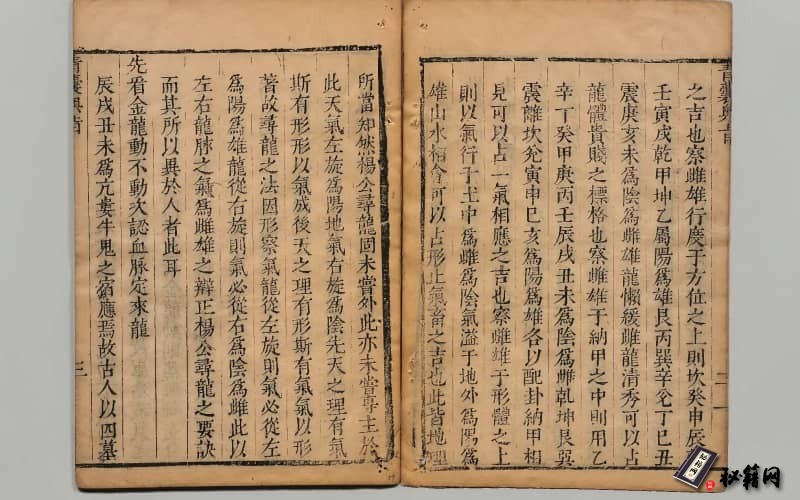 青囊奧旨
二
之吉也察雌雄行度于方位之上則坎癸申辰
壬寅戌乾甲坤乙屬陽爲雄艮丙巽辛兊丁巳丑
震庚亥未爲陰爲雌雄龍懶緩雌龍清秀可以占
龍體貴賤之標格也察雌雄于納甲之中則用乙
辛丁癸甲庚丙壬辰戌丑未爲陰爲雌乾坤艮巽
震離坎兊寅申巳亥爲陽爲雄各以配卦納甲相
見可以占一氣相應之吉也察雌雄于形體之上
則以氣行于土中爲雌爲陰氣溢于地外爲陽爲
雄山水相會可以占形止氣畜之吉也此皆地理
所當知然楊公尋龍固未嘗外此亦未嘗專主於
此天氣左旋爲陽地氣右旋爲陰先天之理有氣
斯有形形以氣成後天之理有形斯有氣氣以形
著故尋龍之法因形察氣龍從左旋則氣必從左
爲陽爲雄龍從右旋則氣必從右爲陰爲雌此以
左右龍脉之氣爲雌雄之辯正楊公尋龍之要訣
而其所以異於人者此耳
先看金龍動不動次認血脉定來龍
辰戌丑未爲亢婁牛鬼之宿應焉故古人以四墓
青囊奧旨
三
秘籍网